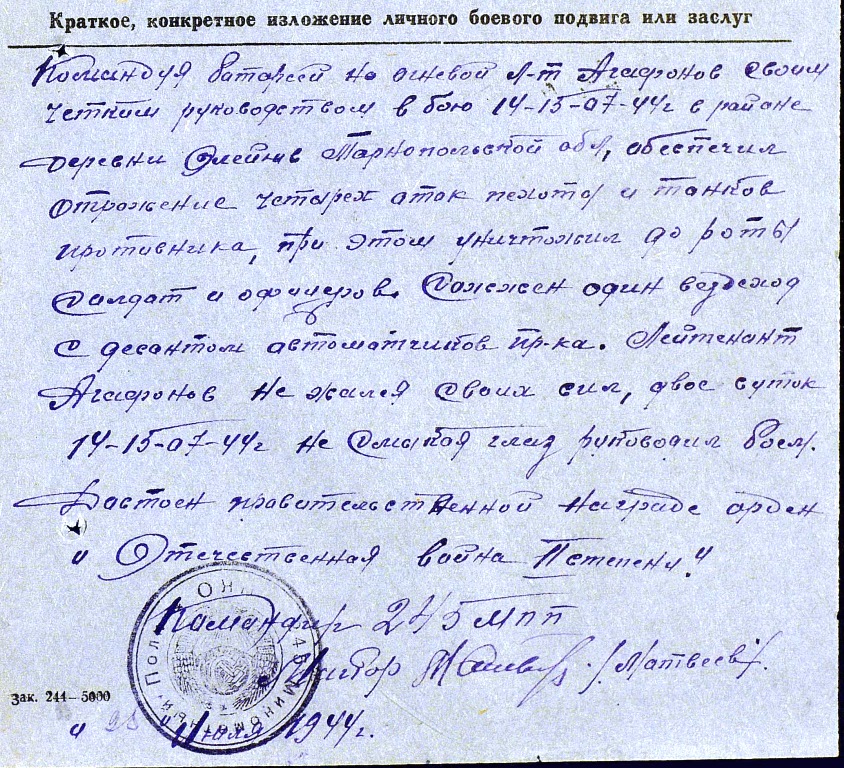 Краткое, конкретное изложение личного боевого подвига или заслуг
Командуя батареей на огневой л-т Агафонов своим
четким руководством в бою 14-15-07-44г в районе
деревни Олейюв Тарнопольской обл, обеспечил
отражение четырех атак пехоты и танков
противника, при этом уничтожил до роты
солдат и офицеров. Сожжен один вездеход
с десантом автоматчиков пр-ка. Лейтенант
Агафонов не жалея своих сил, двое суток
14-15-07-44г не смыкая глаз руководил боем.
Достоен правительственной награде орден
" Отечественная война II степени."
Командир 245 МПП
Майор /Матвеев/.
зак. 244—5000
" " Июля 1944г.